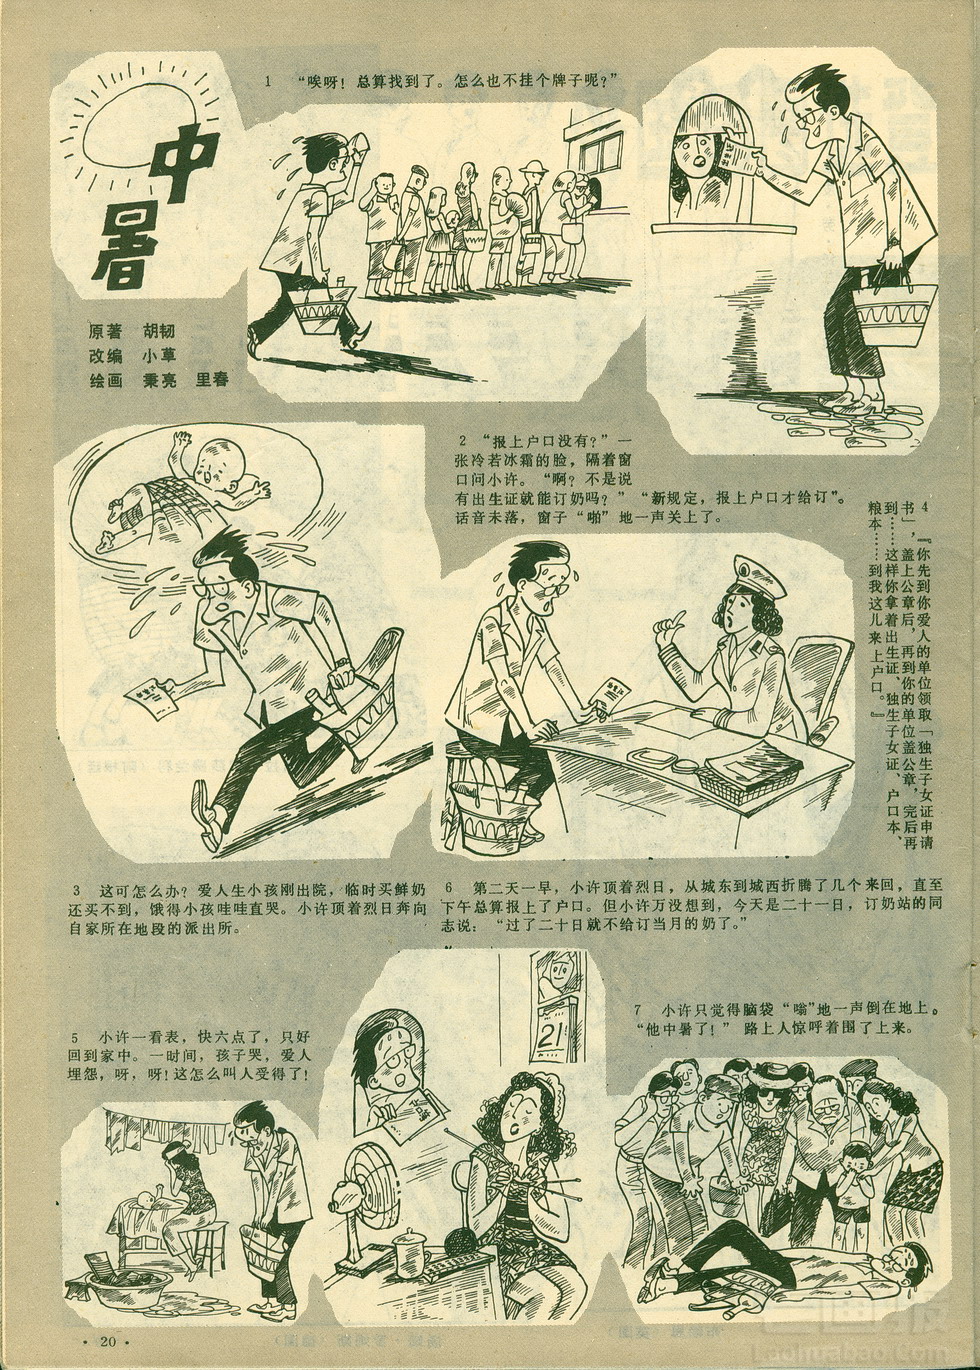 中暑
原著　胡韧
改编　小草
绘画　秉亮　里春
1　“唉呀！总算找到了。怎么也不挂个牌子呢？”
2　“报上户口没有？”一
张冷若冰霜的脸，隔着窗
口问小许。“啊？不是说
有出生证就能订奶吗？”“新规定，报上户口才给订”。
话音未落，窗子“啪”地一声关上了。
3　这可怎么办？爱人生小孩刚出院，临时买鲜奶
还买不到，饿得小孩哇哇直哭。小许顶着烈日奔向
自家所在地段的派出所。
4　『你先到你爱人的单位领取「独生子女证申请
书」，盖上公章后，再到你的单位盖公章，完后再
到……这样你拿着出生证、独生子女证、户口本、
粮本……到我这儿来上户口。』
5　小许一看表，快六点了，只好
回到家中。一时间，孩子哭，爱人
埋怨，呀，呀！这怎么叫人受得了！
6　第二天一早，小许顶着烈日，从城东到城西折腾了几个来回，直至
下午总算报上了户口。但小许万没想到，今天是二十一日，订奶站的同
志说：“过了二十日就不给订当月的奶了。”
21
7　小许只觉得脑袋“嗡”地一声倒在地上。
“他中暑了！”路上人惊呼着围了上来。
· 20 ·
老画报
Laohuabao.com